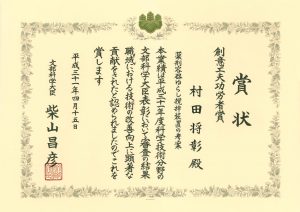 賞状
創意工夫功労者賞
村田将彰殿
薬剤容器ゆらし撹拌装置の考案
本業績は平成三十一年度科学技術分野の
文部科学大臣表彰において審査の結果
職域における技術の改善向上に顕著な
貢献をされたと認められましたのでこれを
賞します
平成三十一年四月十五日
文部科学大臣
柴山昌彦